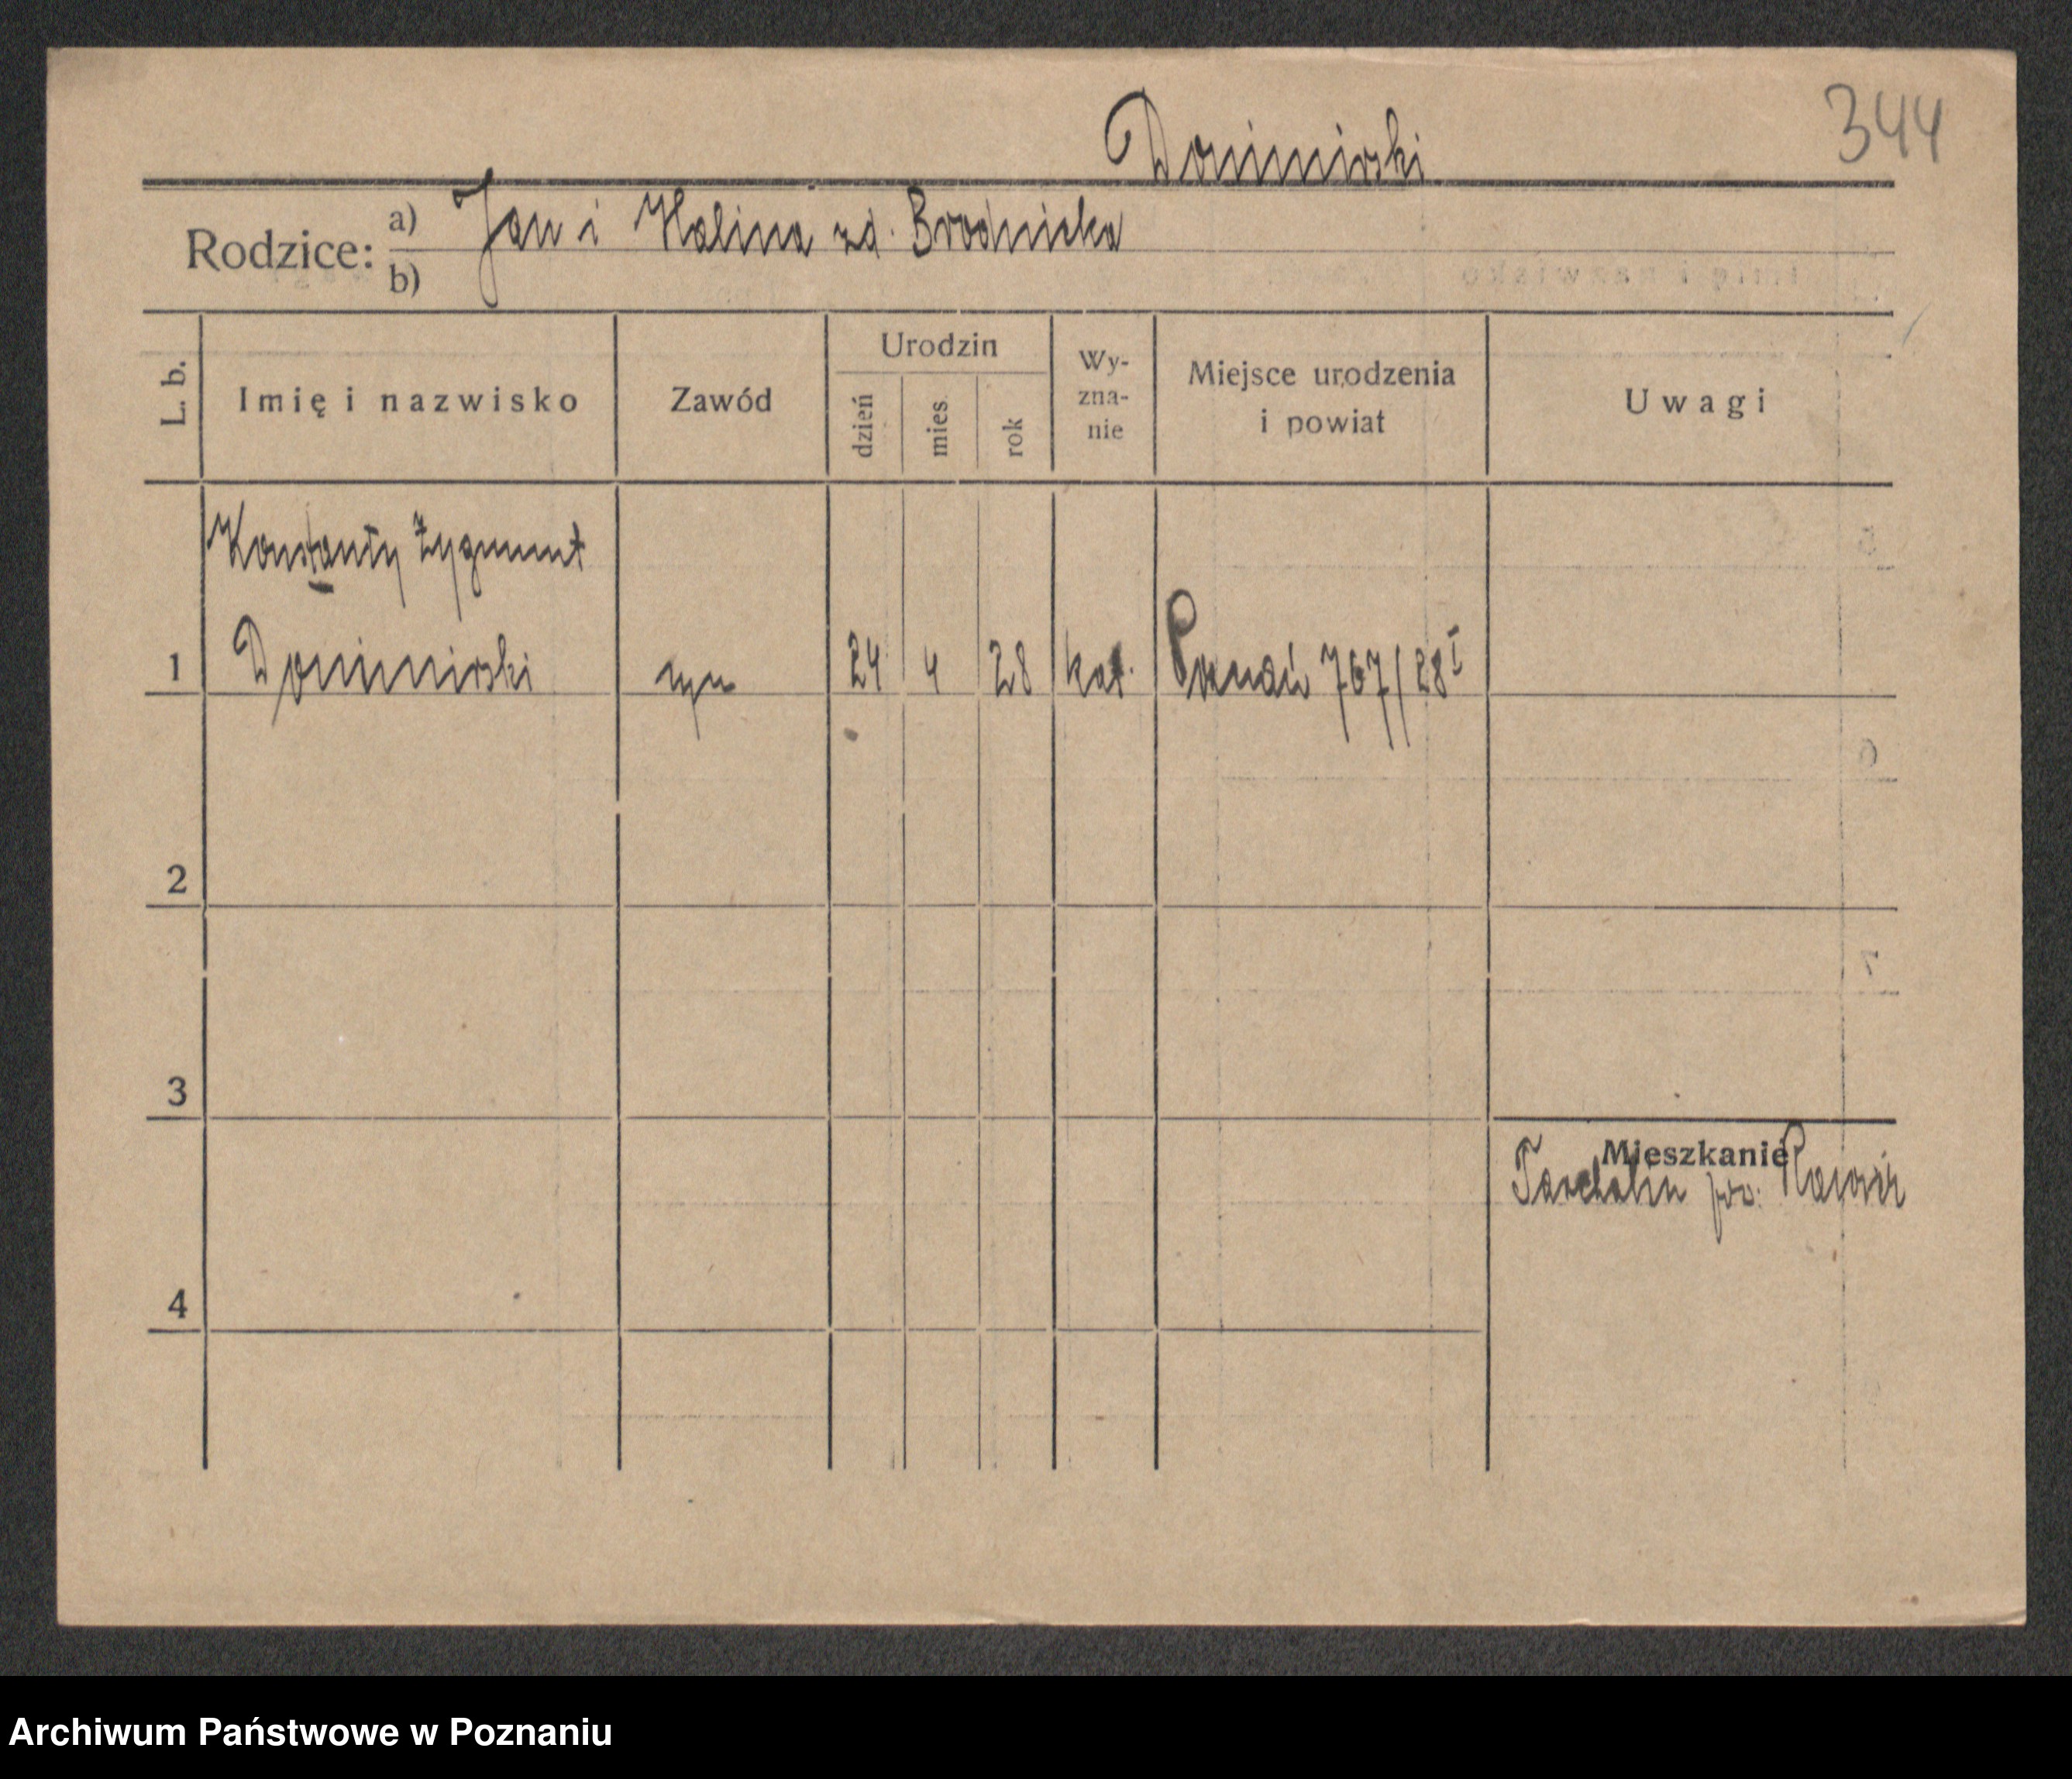 344
Donimirski
Rodzice: a) Jan i Halina zd. Brodnicka
b)
L. b. Imię i nazwisko Zawód Urodzin dzień mies. rok Wy-zna-nie Miejsce urodzenia i powiat Uwagi
Konstanty Zygmunt
1 Donimirski syn 24 4 28 kat. Poznań 767/28 I
2
3
Mieszkanie
pow. Rawicz
4
Archiwum Państwowe w Poznaniu